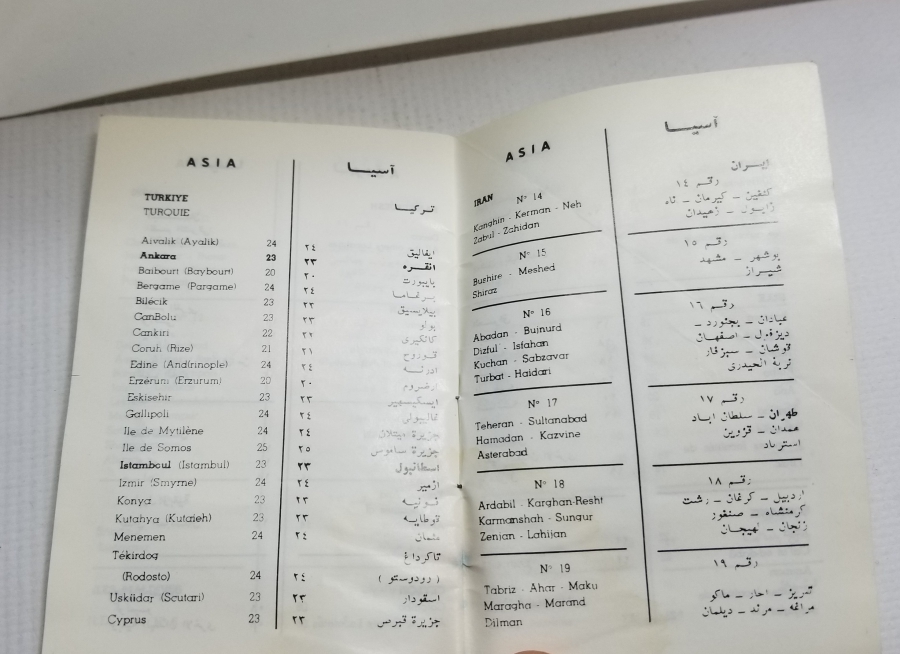 ASIA
آسيـــا
TURKIYE
TURQUIE
تـركيــا
Aivalik (Ayalik) 24 ٢٤ ايفاليق
Ankara 23 ٢٣ انقـره
Baibourt (Baybourt) 20 ٢٠ بايبورت
Bergame (Pargame) 24 ٢٤ بـرغـامـا
Bilécik 23 ٢٣ بيلاتسيق
CanBolu 23 ٢٣ بولو
Cankiri 22 ٢٢
Coruh (Rize) 21 ٢١ قـوروح
Edine (Andrinople) 24 ٢٤ ادرنـه
Erzérum (Erzurum) 20 ٢٠ ارضروم
Eskisehir 23 ٢٣ ايسكيسهير
Gallipoli 24 ٢٤ غاليبولي
Ile de Mytilène 24 ٢٤ جزيرة ميتلان
Ile de Somos 25 ٢٥ جزيرة ساموس
Istamboul (Istambul) 23 ٢٣ اسطانبول
Izmir (Smyrne) 24 ٢٤ ازمير
Konya 23 ٢٣ قـونيـه
Kutahya (Kutaieh) 23 ٢٣ قوطايـه
Menemen 24 ٢٤ مثمان
Tékirdog تاكرداغ
(Rodosto) 24 ٢٤ ( رودوستو )
Usküdar (Scutari) 23 ٢٣ اسقودار
Cyprus 23 ٢٣ جزيرة قبرص
ASIA
آسيـــا
IRAN
ايــران
N° 14
Kanghin - Kerman - Neh
Zabul - Zahidan
رقـم ١٤
كنغين - كيرمان - ناه
زابـول - زهيدان
N° 15
Bushire - Meshed
Shiraz
رقـم ١٥
بوشهر - مشهد
شيـراز
N° 16
Abadan - Bujnurd
Dizful - Isfahan
Kuchan - Sabzavar
Turbat - Haidari
رقـم ١٦
عبادان - بجنورد -
ديزفول - اصفهان
قوشان - سبزفار
تربة الحيدرى
N° 17
Teheran - Sultanabad
Hamadan - Kazvine
Asterabad
رقـم ١٧
طهران - سلطان اباد
همدان - قزوين
استرباد
N° 18
Ardabil - Karghan-Resht
Karmanshah - Sungur
Zenjan - Lahijan
رقـم ١٨
اردبيل - كرغان - رشت
كرمنشاه - صنغور
زنجان - لهيجان
N° 19
Tabriz - Ahar - Maku
Maragha - Marand
Dilman
رقـم ١٩
تبريز - احار - ماكو
مراغه - مرند - ديلمان